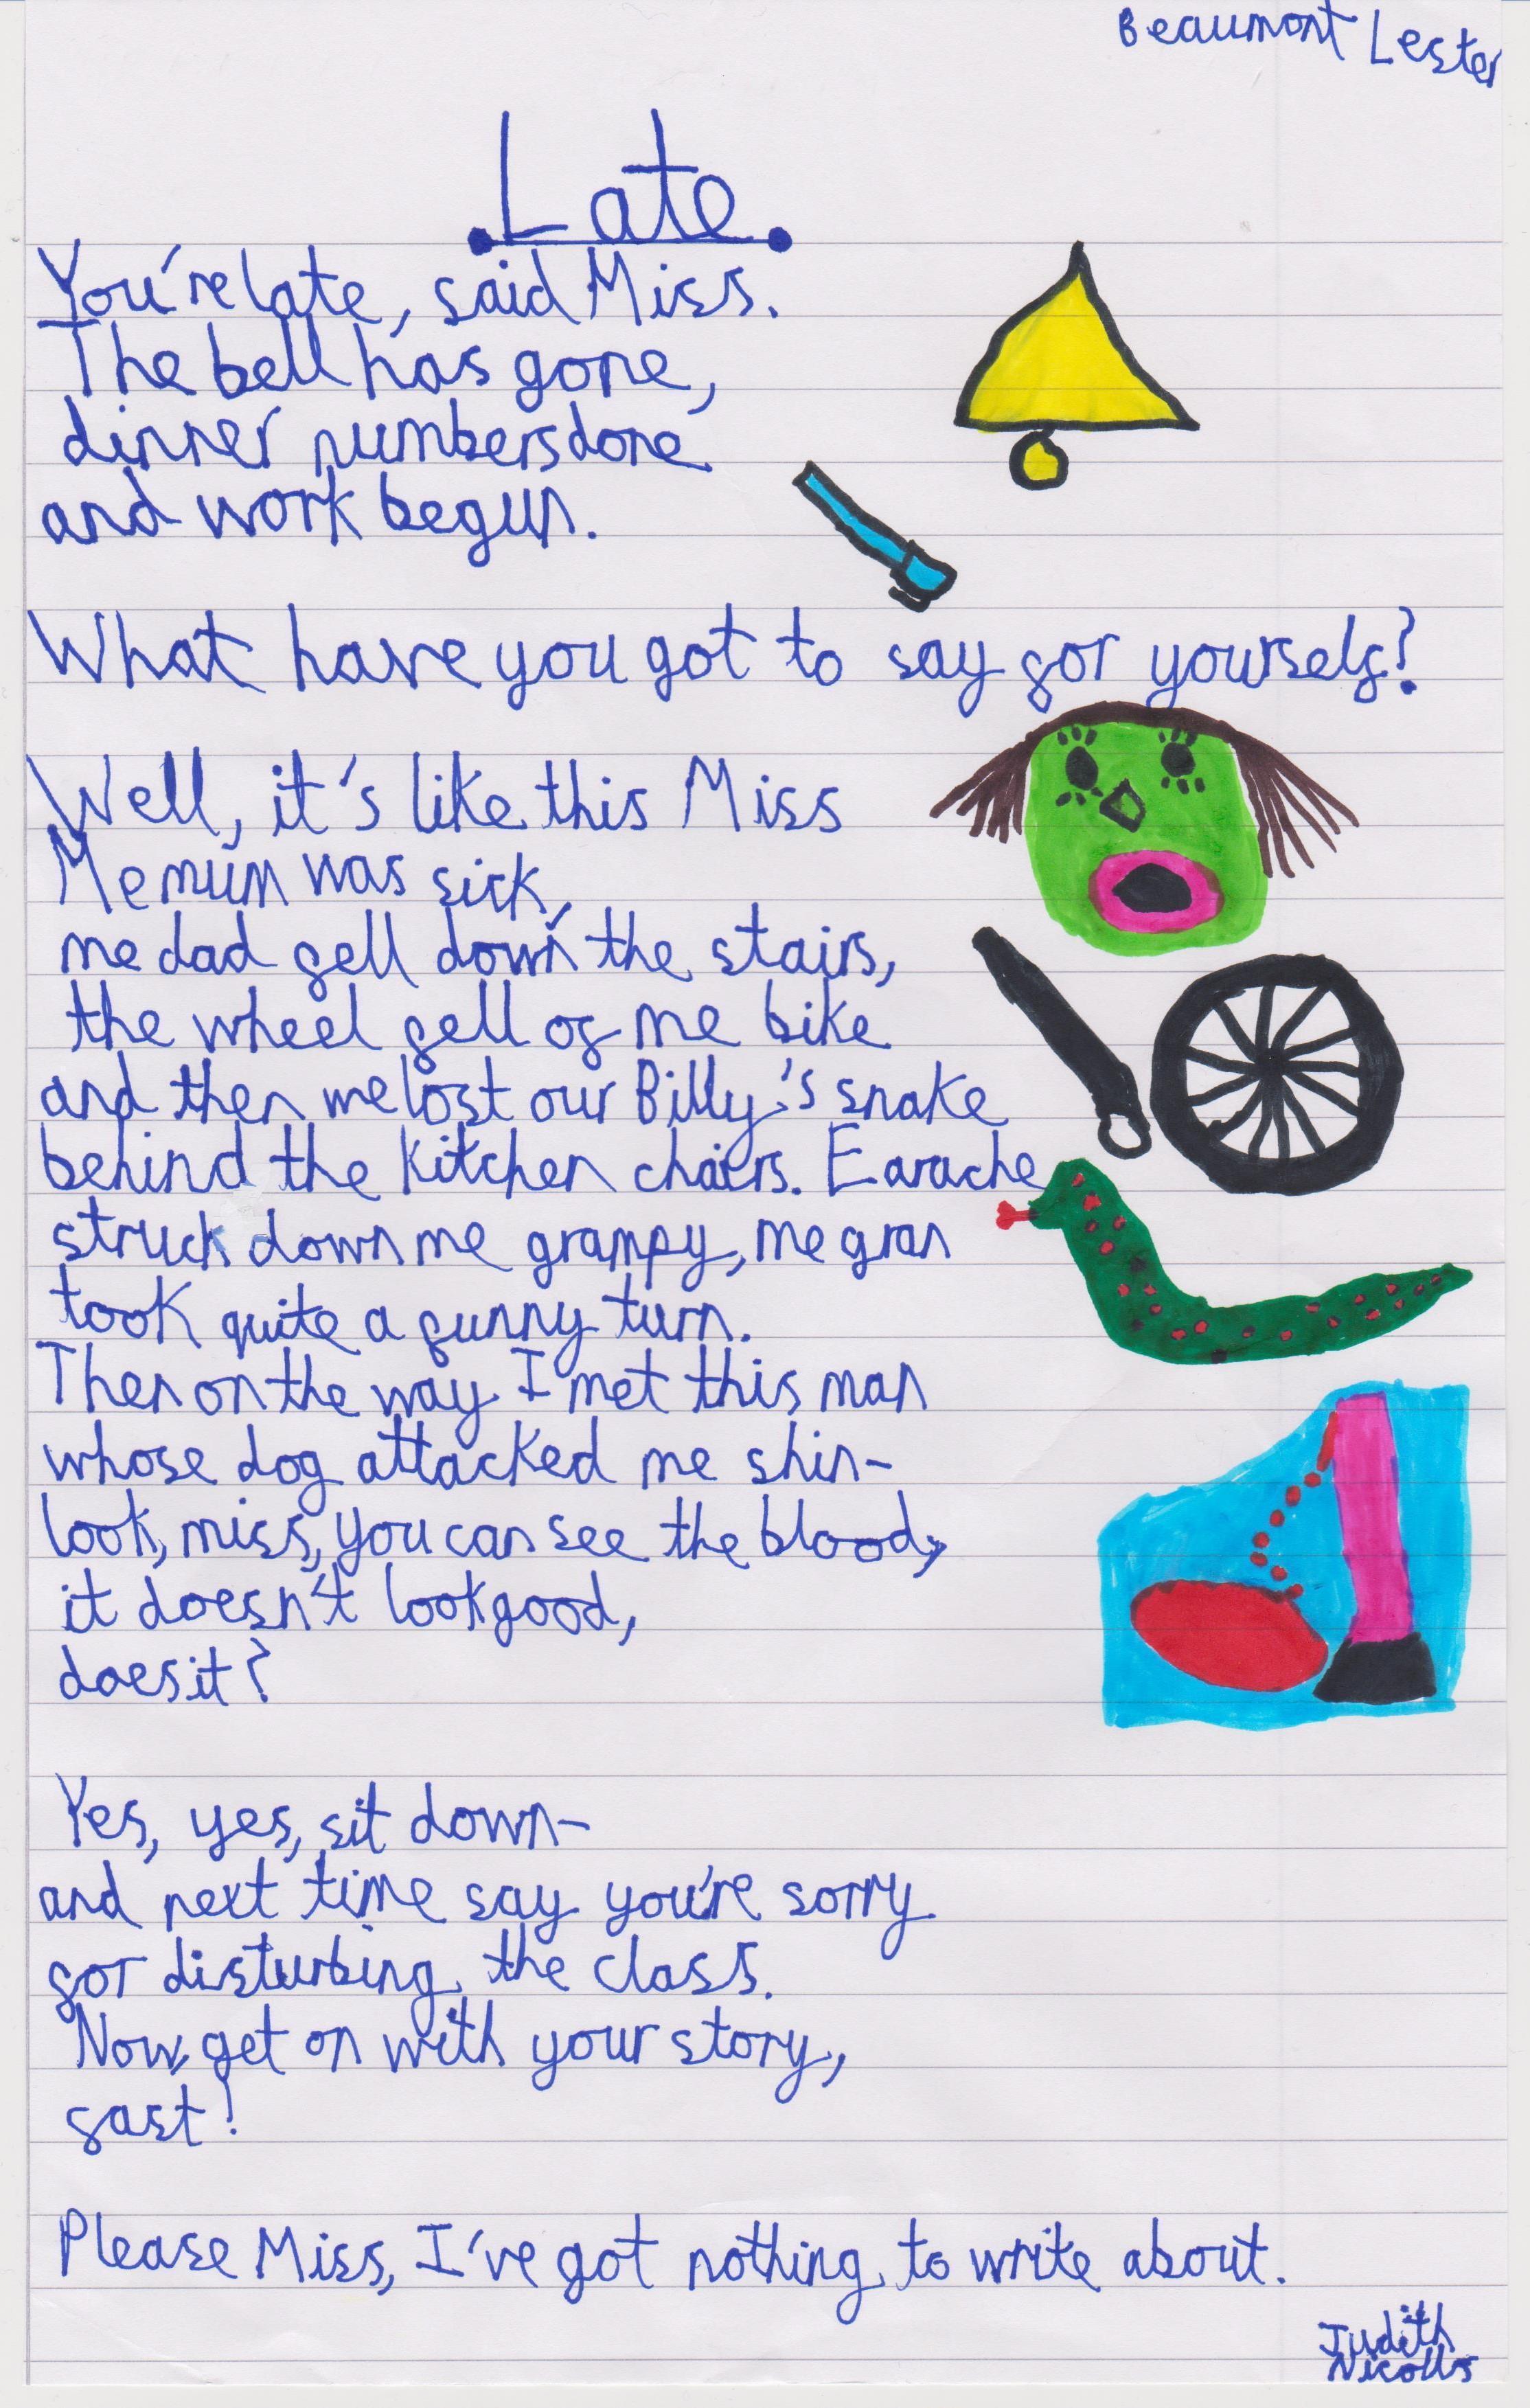 Beaumont Lester
Late.
You're late, said Miss.
The bell has gone,
dinner numbers done
and work begun.
What have you got to say for yourself?
Well, it's like this Miss
Me mum was sick,
me dad fell down the stairs,
the wheel fell of me bike
and then we lost our Billy's snake
behind the kitchen chairs. Earache
struck down me grampy, me gran
took quite a funny turn.
Then on the way I met this man
whose dog attacked me shin-
look, miss, you can see the blood,
it doesn't look good,
does it?
Yes, yes, sit down-
and next time say you're sorry
for disturbing the class.
Now, get on with your story,
fast!
Please Miss, I've got nothing to write about.
Judith
Nicolls